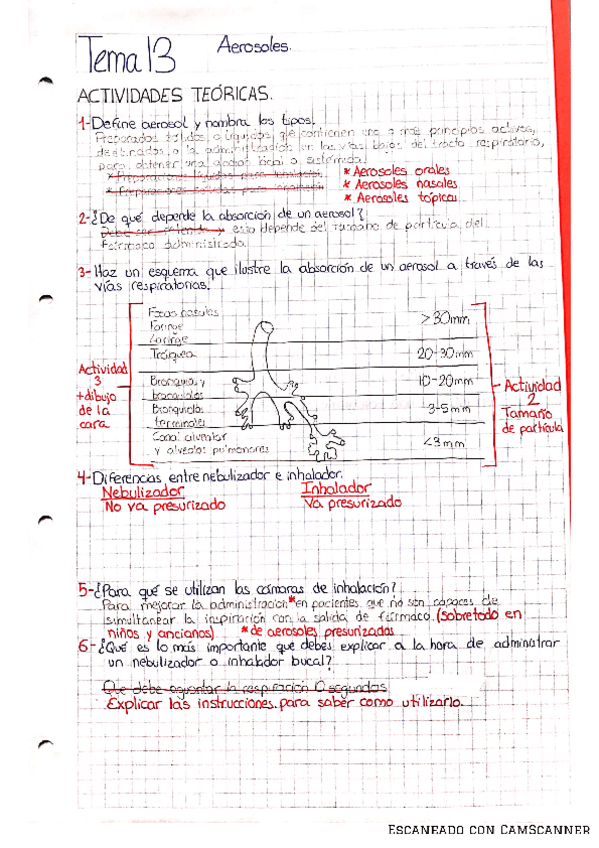 Tema 13 Aerosoles.
ACTIVIDADES TEÓRICAS.
1-Define aerosol y nombra los tipos.
Preparados sólidos o líquidos que contienen uno o más principios activos,
destinados a la administración en las vías bajas del tracto respiratorio,
para obtener una acción local o sistémica.
* Aerosoles orales
* Aerosoles nasales
* Aerosoles tópicos
2-¿De qué depende la absorción de un aerosol?
esto depende del tamaño de partícula del
fármaco administrado
3-Haz un esquema que ilustre la absorción de un aerosol a través de las
vías respiratorias.
Fosas nasales
Faringe
Laringe
>30mm
Tráquea 20-30mm
Bronquios y
bronquiolos
10-20mm
Bronquiolos
terminales
3-5mm
Canal alveolar
y alveolos pulmonares
<3mm
Actividad
3
+dibujo
de la
cara
Actividad
2
Tamaño
de partícula
4-Diferencias entre nebulizador e inhalador.
Nebulizador Inhalador
No va presurizado Va presurizado
5-¿Para qué se utilizan las cámaras de inhalación?
Para mejorar la administración * en pacientes que no son capaces de
simultanear la inspiración con la salida de fármaco (sobretodo en
niños y ancianos) *de aerosoles presurizados
6-¿Qué es lo más importante que debes explicar a la hora de administrar
un nebulizador o inhalador bucal?
Que debe aguantar la respiración 10 segundos
Explicar las instrucciones para saber como utilizarlo.
ESCANEADO CON CAMSCANNER